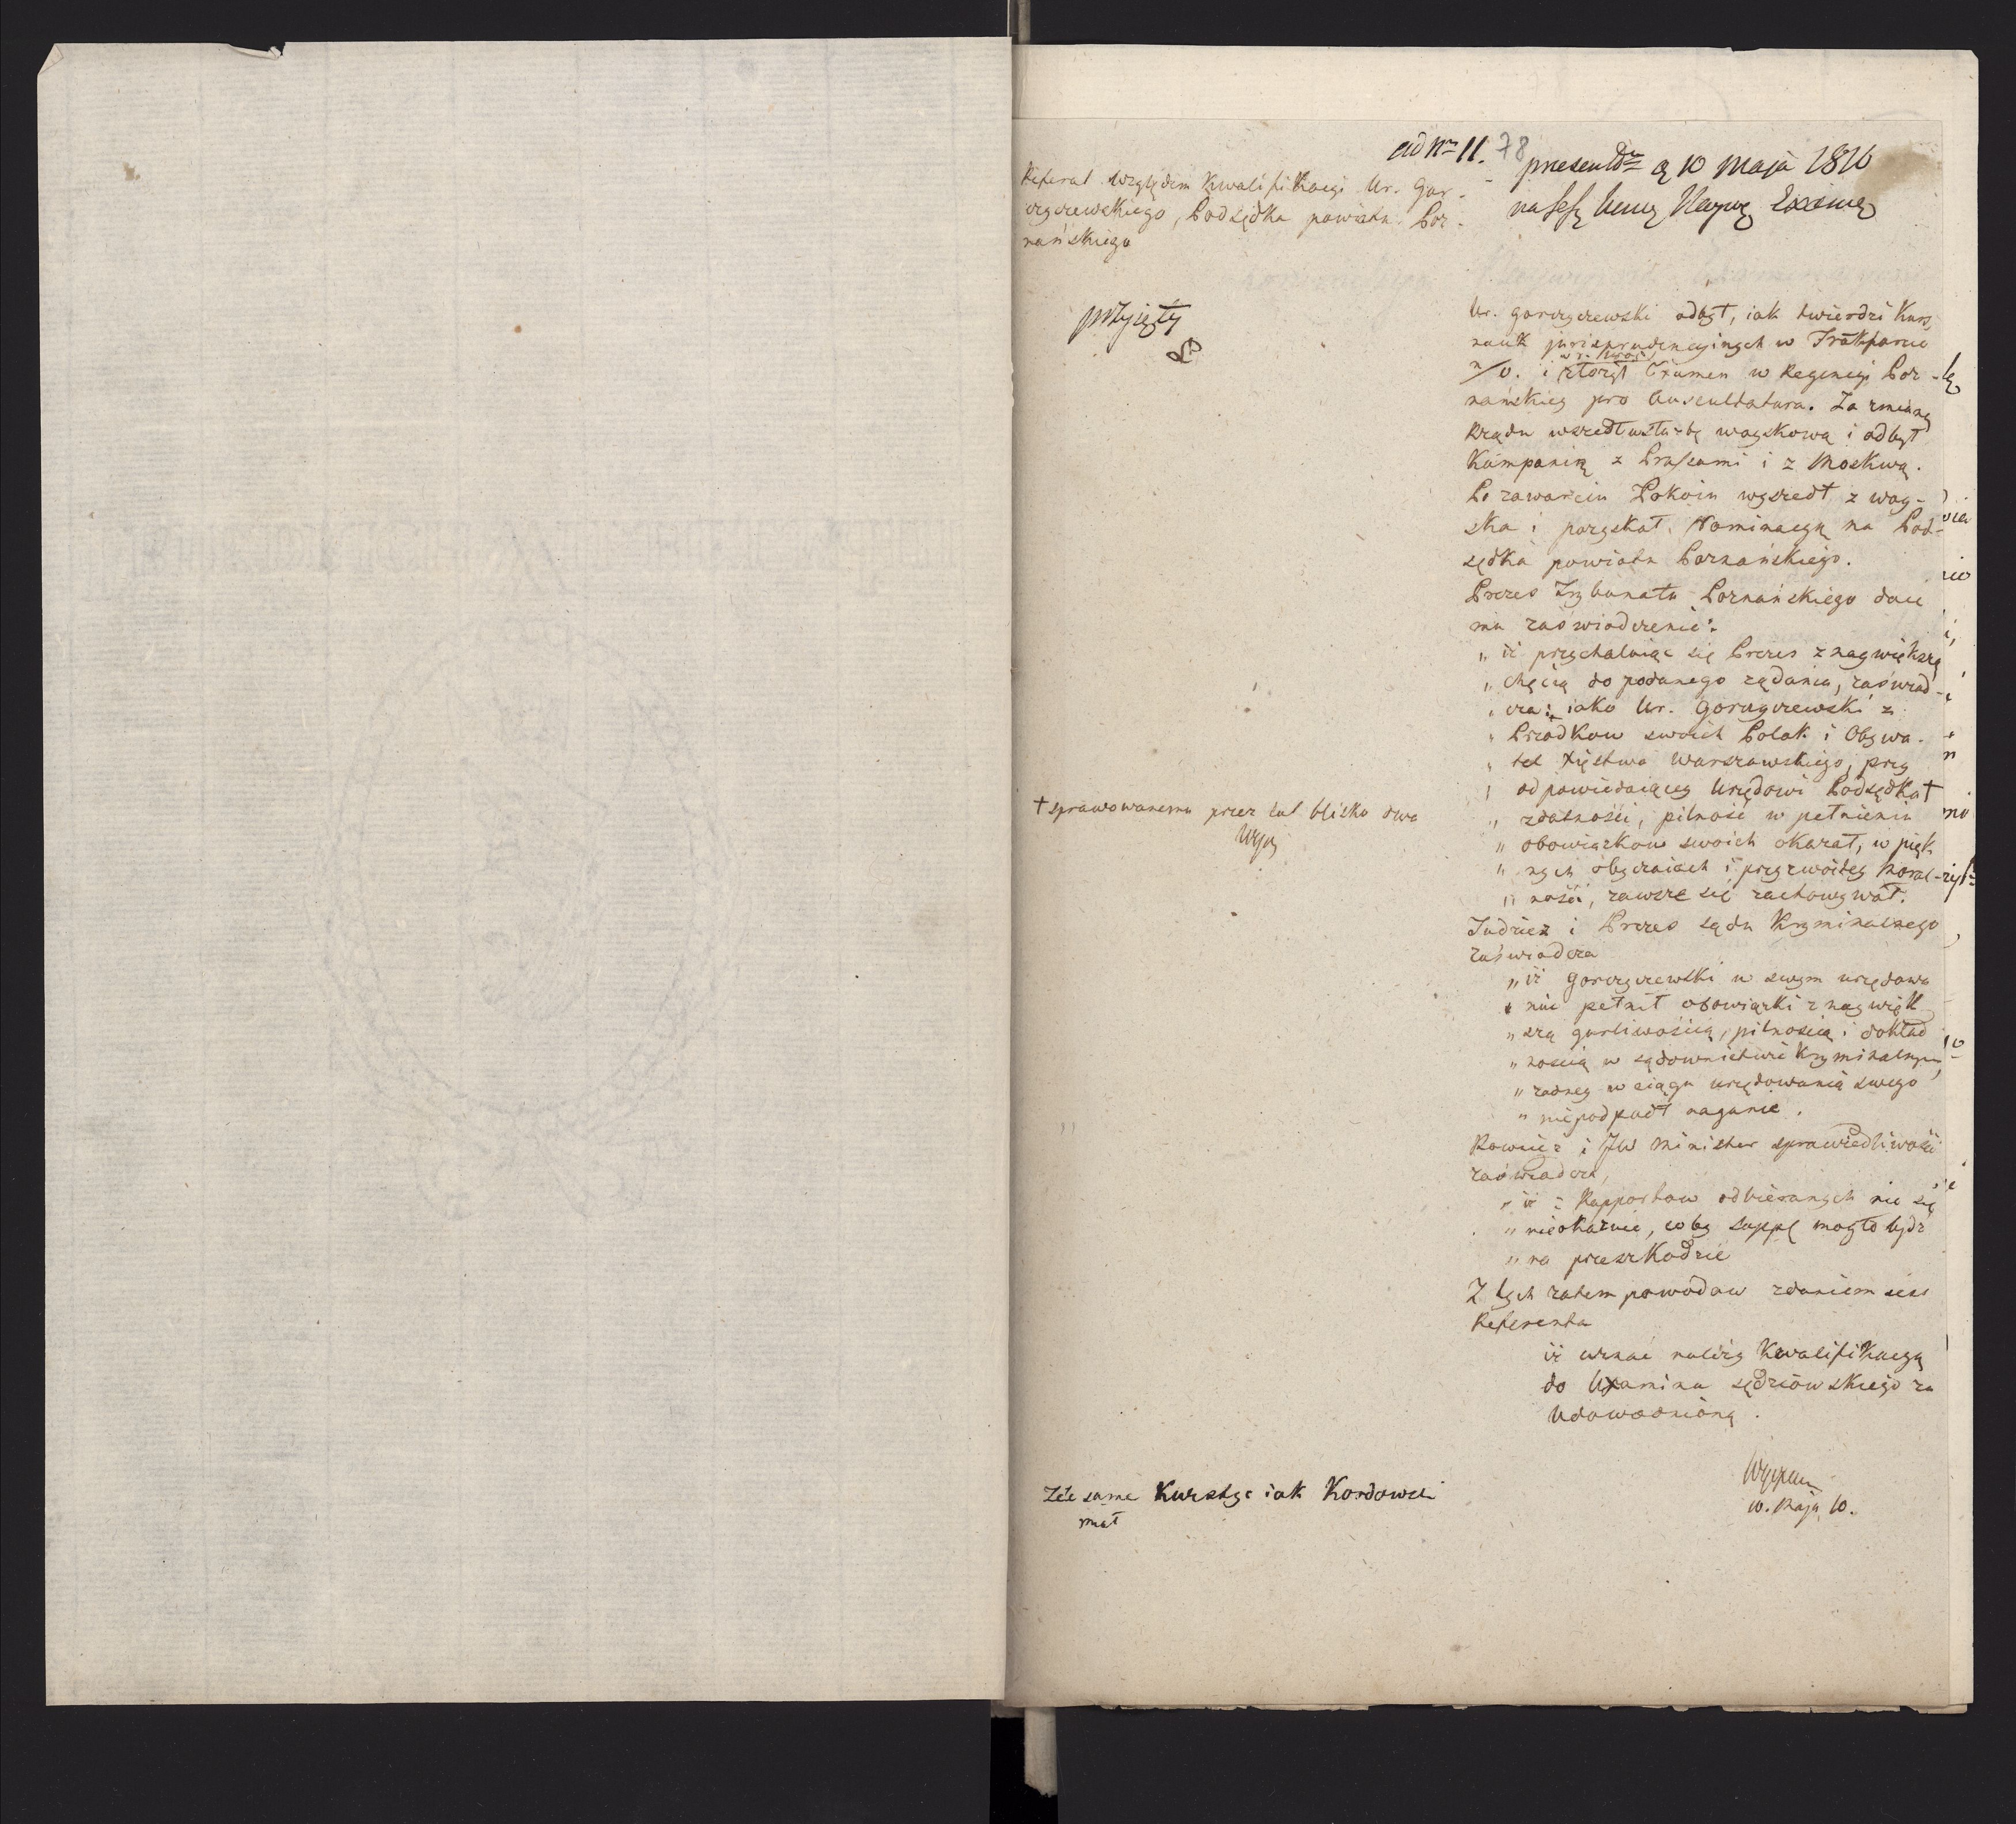 ad Nr 11. 78
presentdm d 10 Maja 1810
na Sess
Referat względem Kwalifikacyi Ur. Gor-
czyczewskiego, Podsędka powiatu Poz-
nańskiego
przyięty
Ur. Gorczyczewski odbył, iak twierdzi Kurs
nauk jurisprudencyinych w Frankfurcie
n/O. i złożył Examen w Regencyi Poz-
nańskiey pro Auscultatura. Za zmianą
Rządu wszedł w służbę woyskową i odbył
Kampanią z Prusami i z Moskwą.
Po zawarciu Pokoiu wyszedł z woy-
ska i pozyskał Nominacyą na Pod-
sędka powiatu Poznańskiego.
Prezes Trybunału Poznańskiego daie
mu zaświadczenie:
„ iż przychylaiąc się Prezes z naywiększą
„ chęcią do podanego żądania, zaświad-
„ cza: iako Ur. Gorczyczewski z
„ Przodkow swoich Polak i Obywa-
„ tel Xięstwa Warszawskiego, przy
„ odpowiedaiącey Urzędowi Podsędka †
„ zdatności, pilność w pełnieniu
„ obowiązkow swoich okazał, w pięk-
„ nych obyczaiach i przyzwoitey moral-
„ ności, zawsze się zachowywał.
† sprawowanemu przez lat blisko dwa
Tudzież i Prezes Sądu Kryminalnego
zaświadcza
„ iż Gorczyczewski w swym urzędowa
„ niu pełnił obowiązki z naywięk
„ szą gorliwością, pilnością i dokład
„ nością w sądownictwie Kryminalnym,
„ żadney w ciągu urzędowania swego
„ niepodpadł naganie.
Rownież i JW Minister sprawiedliwości
zaświadcza,
„ iż z Rapportow odbieranych nic się
„ nieokazuie, co by Suppl mogło bydź
„ na przeszkodzie
Z tych zatem powodow zdaniem iest
Referenta
iż uznać należy Kwalifikacyą
do Examinu sędziowskiego za
Udowodnioną.
10. Maja 10.
Też same Kursa iak Kordowski
miał